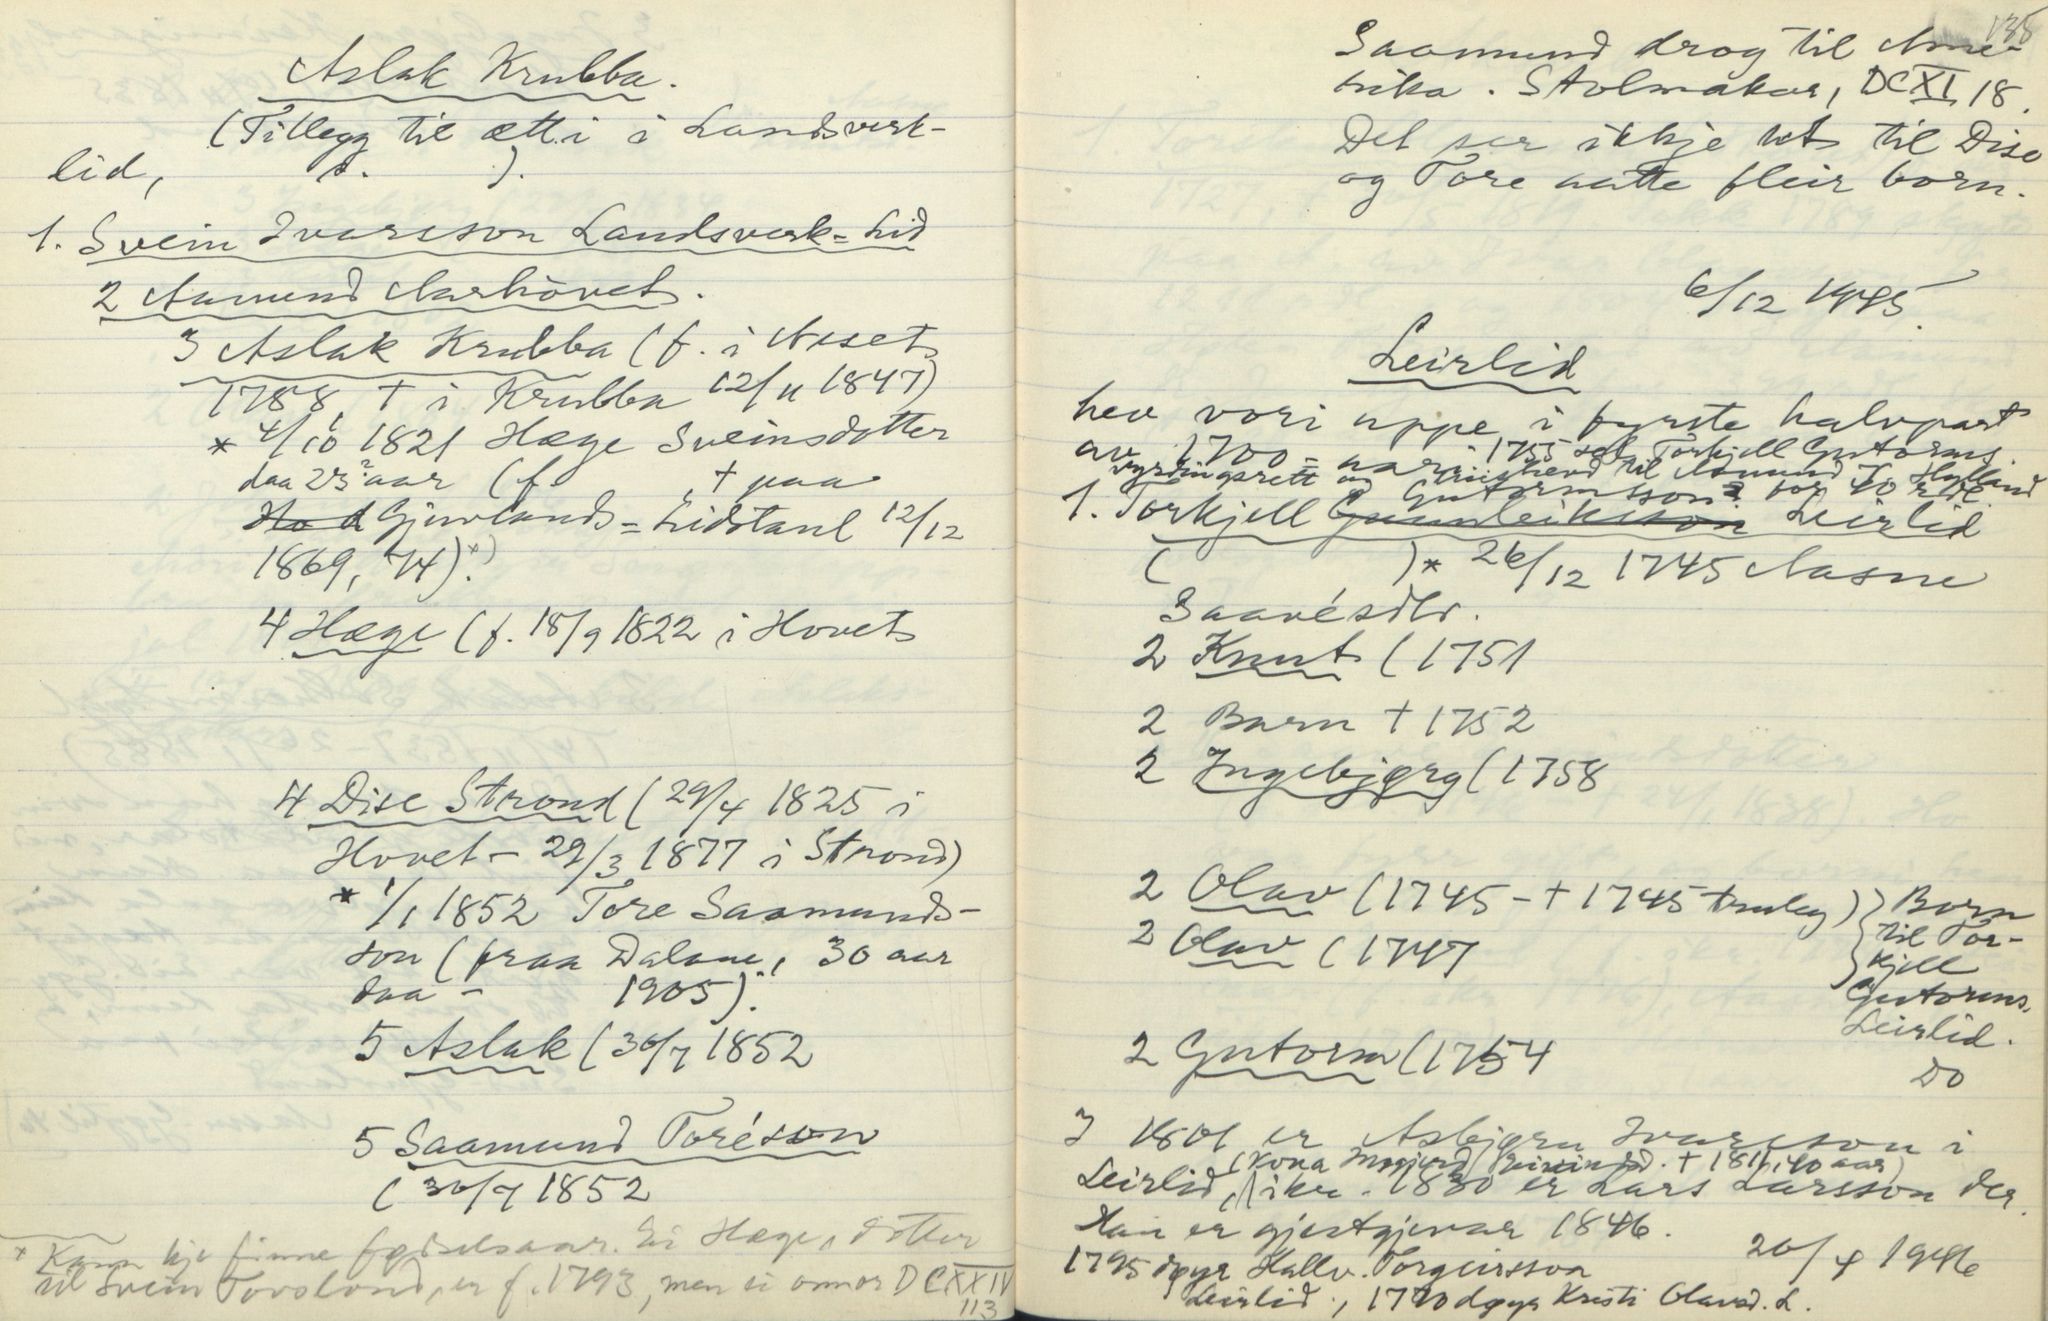 Aslak Krubba.
(Tillegg til ætt i i Landsverk-
lid, s. ).
1. Svein Ivarsson Landsverk-Lid
2 Aamund Aarhövet.
3 Aslak Krubba (f. i Neset
1788, † i Krubba 12/11 1847)
* 4/10 1821 Hæge Sveinsdotter
daa 23? aar (f. , † paa
Gjuvlands-Lidstaul 12/12
1869, 74).*)
4 Hæge (f. 18/9 1822 i Hovet
4 Dise Strond (29/4 1825 i
Hovet - 29/3 1877 i Strond)
* 1/1 1852 Tore Saamunds-
son (fraa Dalane, 30 aar
daa - 1905).
5 Aslak (30/7 1852
5 Saamund Toréson
(30/7 1852
* Kann kje finne fødselsaar. Ei Hæge, dotter
til Svein Tovslond, er f. 1793, men ei onnor DCXXIV
113
135
Saamund drog til Ame-
rika. Stolmakar, DCXI 18.
Det ser ikkje ut til Dise
og Tore aatte fleir born.
6/12 1945.
Leirlid
hev vori uppe i fyrste halvpart
av 1700-aari. 1755 sel Torkjell Gutorms.
byrdingsrett til Aamund Hylland
for 40 rdl
1. Torkjell Gunleiksson Gutormsson? Leirlid
( )* 26/12 1745 Aasne
Saavésdtr.
2 Knut (1751
2 Barn † 1752
2 Ingebjørg (1758
2 Olav (1745 - † 1745 truleg) } Born
2 Olav (1747 } til Tor-
kjell
Gutorms.
Leirlid.
2 Gutorm (1754
Do
I 1801 er Asbjørn Ivarsson i
Leirlid, (kona † 1811, 40 aar)
ikr. 1830 er Lars Larsson der.
Han er gjestgjevar 1846.
20/4 1946
1795 døyr Hallv. Torgeirsson
Leirlid, 1770 døyr Kristi Olavsd. L.